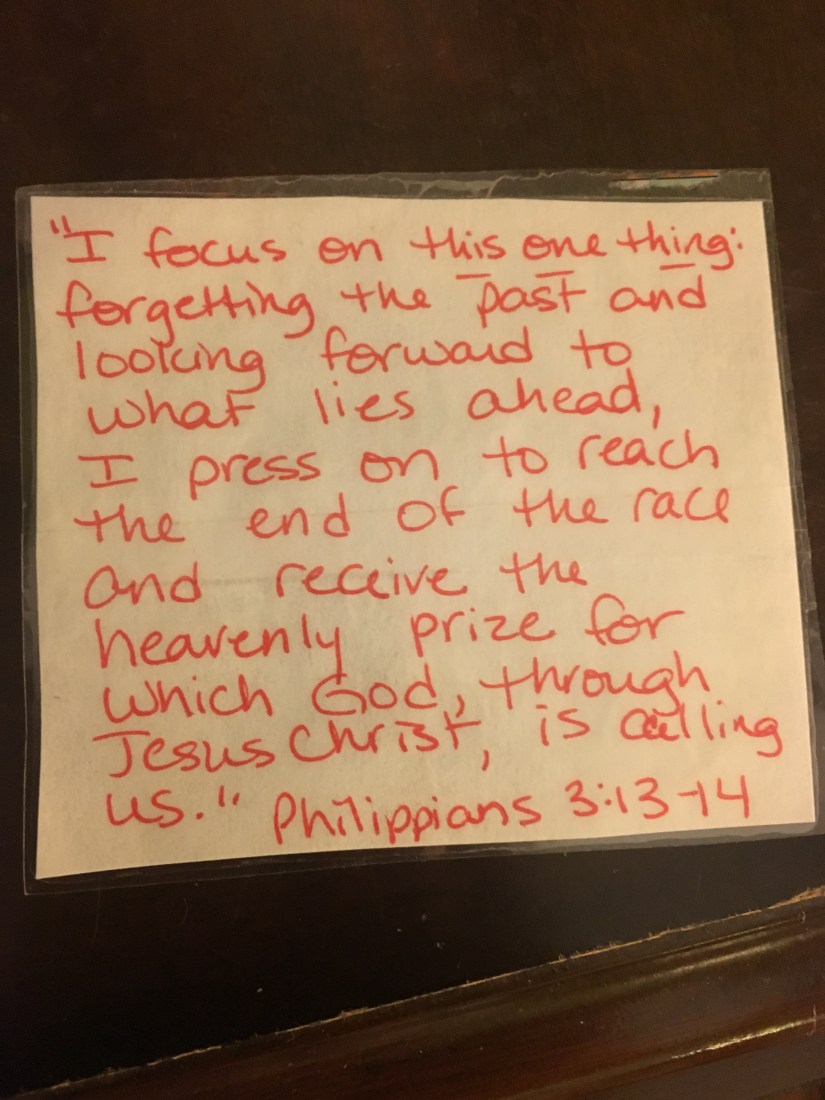 "I focus on this one thing:
forgetting the past and
looking forward to
what lies ahead,
I press on to reach
the end of the race
and receive the
heavenly prize for
which God, through
Jesus Christ, is calling
us." Philippians 3:13-14